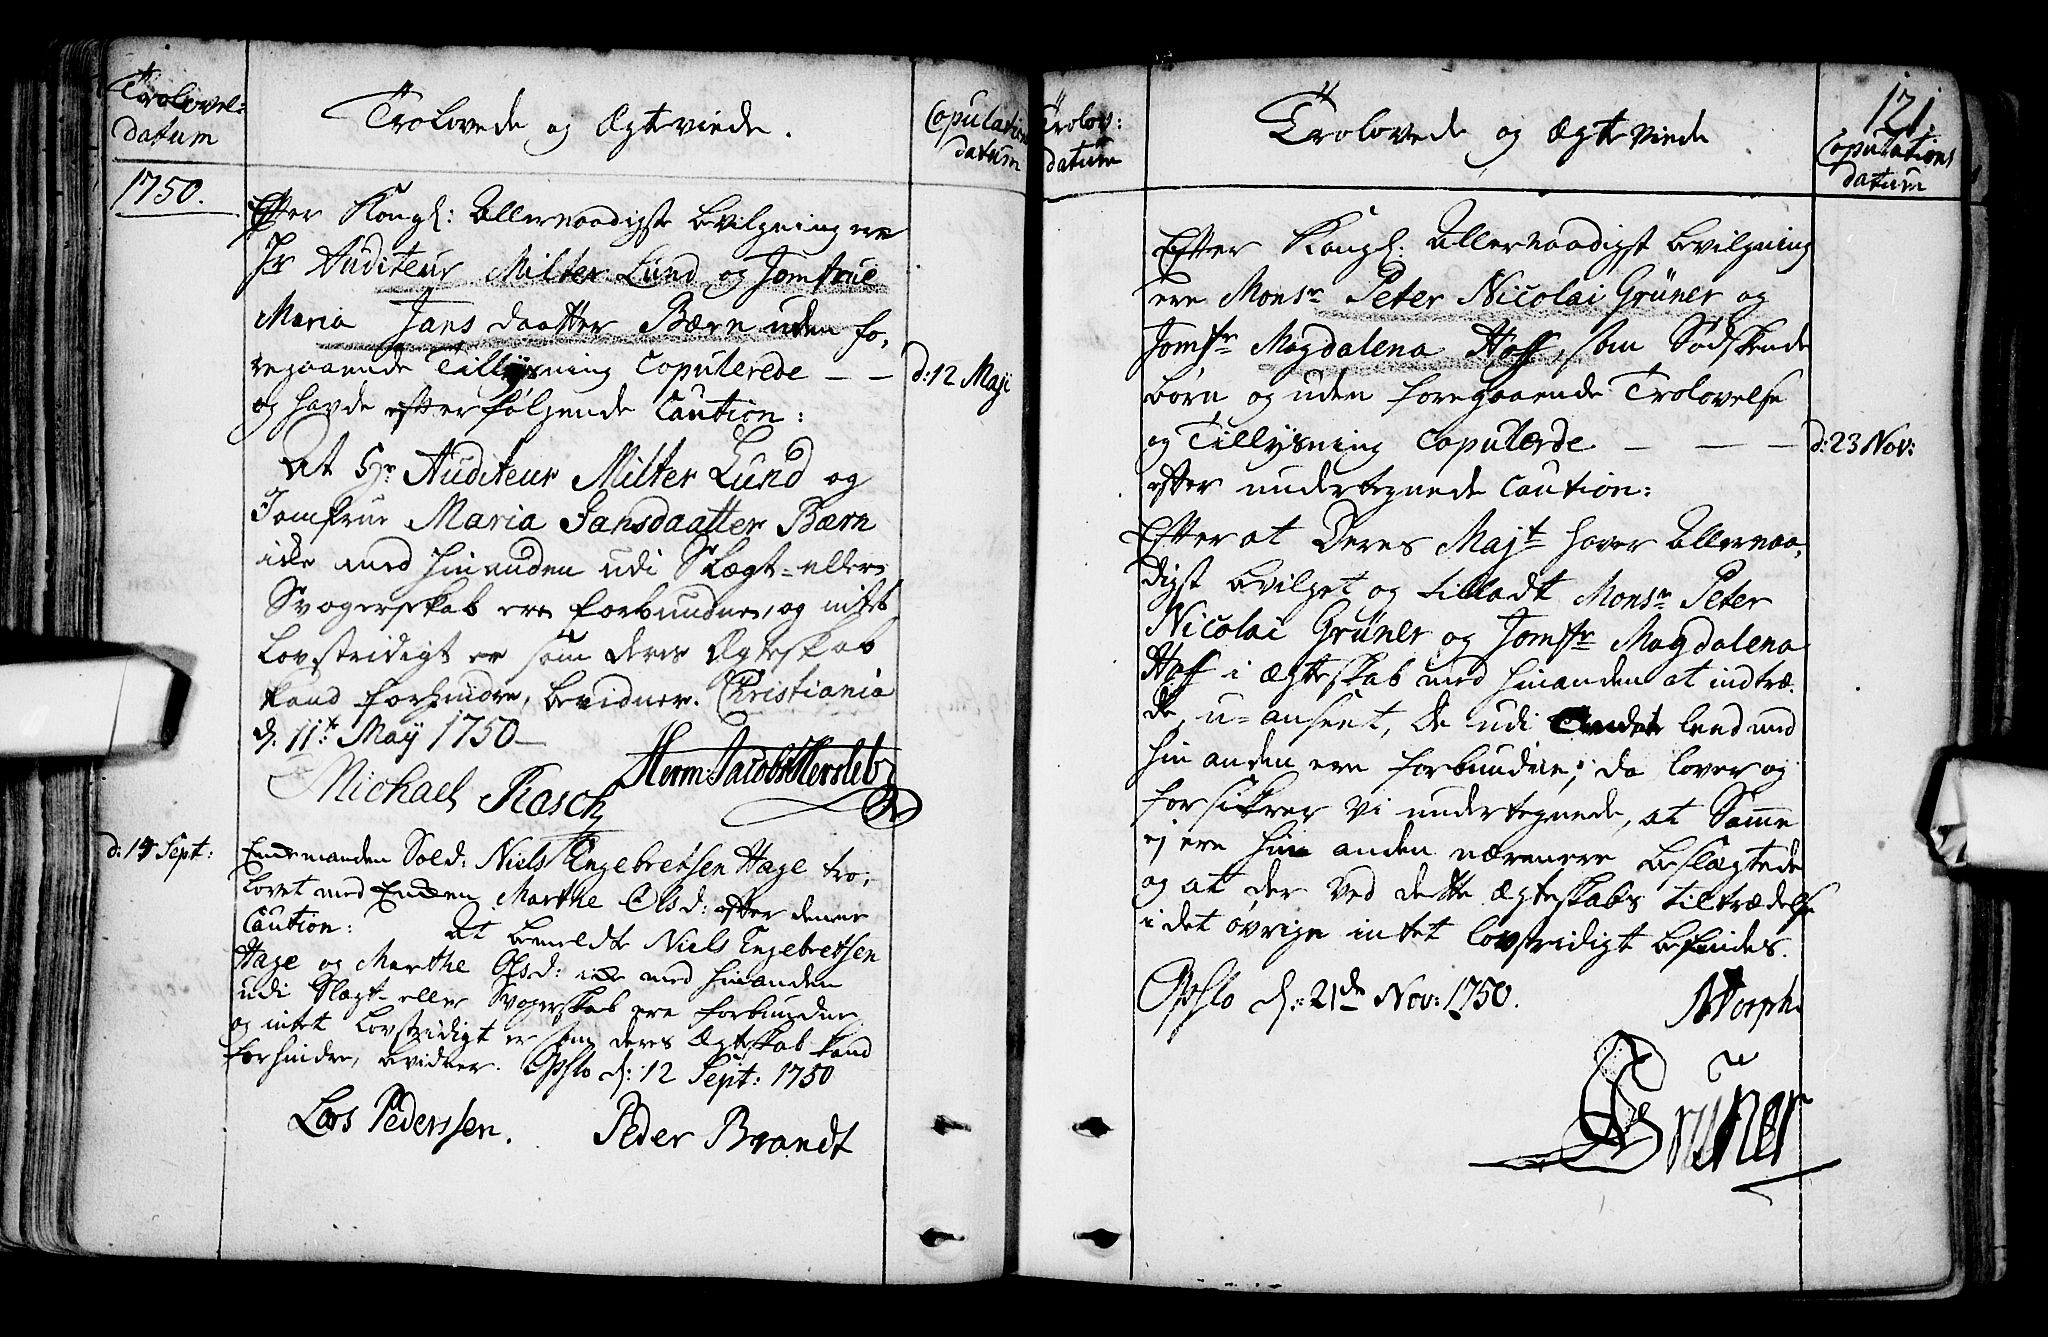 Trolovel=
datum
Trolovede og Ægteviede.
Copulations
datum
1750.
Efter Kongl: Allernaadigste bevilgning ere
Hr Auditeur Milter Lund og Jomfrue
Maria Jans daatter Bærn uden fo,
regaaende Tillysning Copulerede — —
d: 12 Maji
og havde efterfølgende Caution:
At Hr Auditeur Milter Lund og
Jomfrue Maria Jansdaatter Bærn
icke med hinanden udi Slægt- eller
Svogerskab ere forbundne, og intet
Lovstridigt er som deres Ægteskab
kand forhindre, bevidner. Christiania
d. 11te May 1750—
Herm: Jacobs: Hersleb
Michael Rasch
d: 14 Sept:
Enckemanden Sold: Niels Engebretsen Hage tro,
lovet med Encken Marthe Olsd: efter denne
Caution: At bemeldte Niels Engebretsen
Hage og Marthe Olsd: icke med hinanden
udi Slægt- eller Svogerskab ere forbundne
og intet Lovstridigt er som deres Ægteskab kand
forhindre, bevidner. Opslo d: 12 Sept: 1750
Lars Pederssen. Peder Brandt
Trolov:
datum
Trolovede og Ægteviede
121.
Copulations
datum
Efter Kongl: Allernaadigst bevilgning
ere Monsr Peter Nicolai Grüner og
Jomfr Magdalena Hoff, som Södskende
börn og uden foregaaende Trolovelse
og Tillysning Copulerde — — —
d: 23 Nov:
efter undertegnede Caution:
Efter at Deres Majt haver Allernaa,
digst bevilget og tilladt Monsr Peter
Nicolai Grüner og Jomfr Magdalena
Hoff i Ægteskab med hinanden at indtræ,
de, u-anseet, de udi andet leed med
hinanden ere forbundne; da lover og
forsikrer vi undertegnede, at Samme
ej ere hin anden nærmere beslægtede
og at der ved dette Ægteskabs tiltrædelse
i det övrige intet lovstridigt befindes.
Opslo d: 21de Nov: 1750.
Grüner